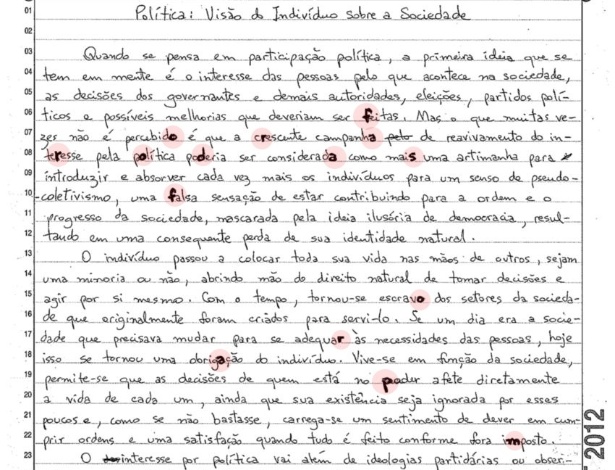 01 Política: Visão do Indivíduo sobre a Sociedade
02
03 Quando se pensa em participação política, a primeira ideia que se
04 tem em mente é o interesse das pessoas pelo que acontece na sociedade,
05 as decisões dos governantes e demais autoridades, eleições, partidos polí-
06 ticos e possíveis melhorias que deveriam ser feitas. Mas o que muitas ve-
07 zes não é percebido é que a crescente campanha pelo de reavivamento do in-
08 teresse pela política poderia ser considerada como mais uma artimanha para
09 introduzir e absorver cada vez mais os indivíduos para um senso de pseudo-
10 -coletivismo, uma falsa sensação de estar contribuindo para a ordem e o
11 progresso da sociedade, mascarada pela ideia ilusória de democracia, resul-
12 tando em uma consequente perda de sua identidade natural.
13 O indivíduo passou a colocar toda sua vida nas mãos de outros, sejam
14 uma minoria ou não, abrindo mão do direito natural de tomar decisões e
15 agir por si mesmo. Com o tempo, tornou-se escravo dos setores da socieda-
16 de que originalmente foram criados para servi-lo. Se um dia era a socie-
17 dade que precisava mudar para se adequar às necessidades das pessoas, hoje
18 isso se tornou uma obrigação do indivíduo. Vive-se em função da sociedade,
19 permite-se que as decisões de quem está no poder afete diretamente
20 a vida de cada um, ainda que sua existência seja ignorada por esses
21 poucos e, como se não bastasse, carrega-se um sentimento de dever em cum-
22 prir ordens e uma satisfação quando tudo é feito conforme fora imposto.
23 O interesse por política vai além de ideologias partidárias ou obser-
2012